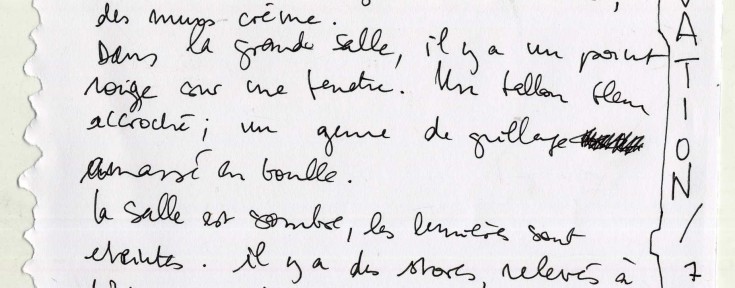 des murs crème.
Dans la grande salle, il y a un point
rouge sur une fenêtre. Un ballon bleu
accroché ; un genre de grillage
amassé en boulle.
la salle est sombre, les lumières sont
éteintes. il y a des stores, relevés à
VATION / 7